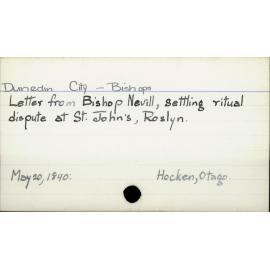 Dunedin City – Bishops
Letter from Bishop Nevill, settling ritual
dispute at St. John's, Roslyn.
May 20, 1890: Hocken, Otago.